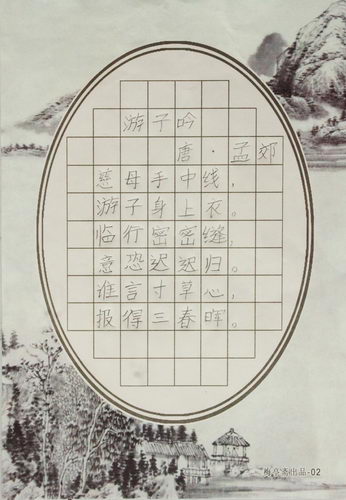 游子吟
唐·孟郊
慈母手中线，
游子身上衣。
临行密密缝，
意恐迟迟归。
谁言寸草心，
报得三春晖。
梅亭斋出品-02